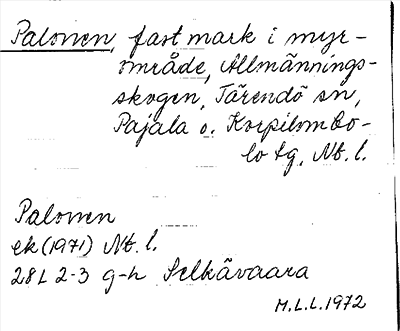 Palonen, fast mark i myr-
område, Allmännings-
skogen, Tärendö sn,
Pajala o. Korpilombo-
lo tg, Nb. l.
Palonen
ek (1971) Nb. l.
28L 2-3 g-h Selkävaara
M.L.L. 1972